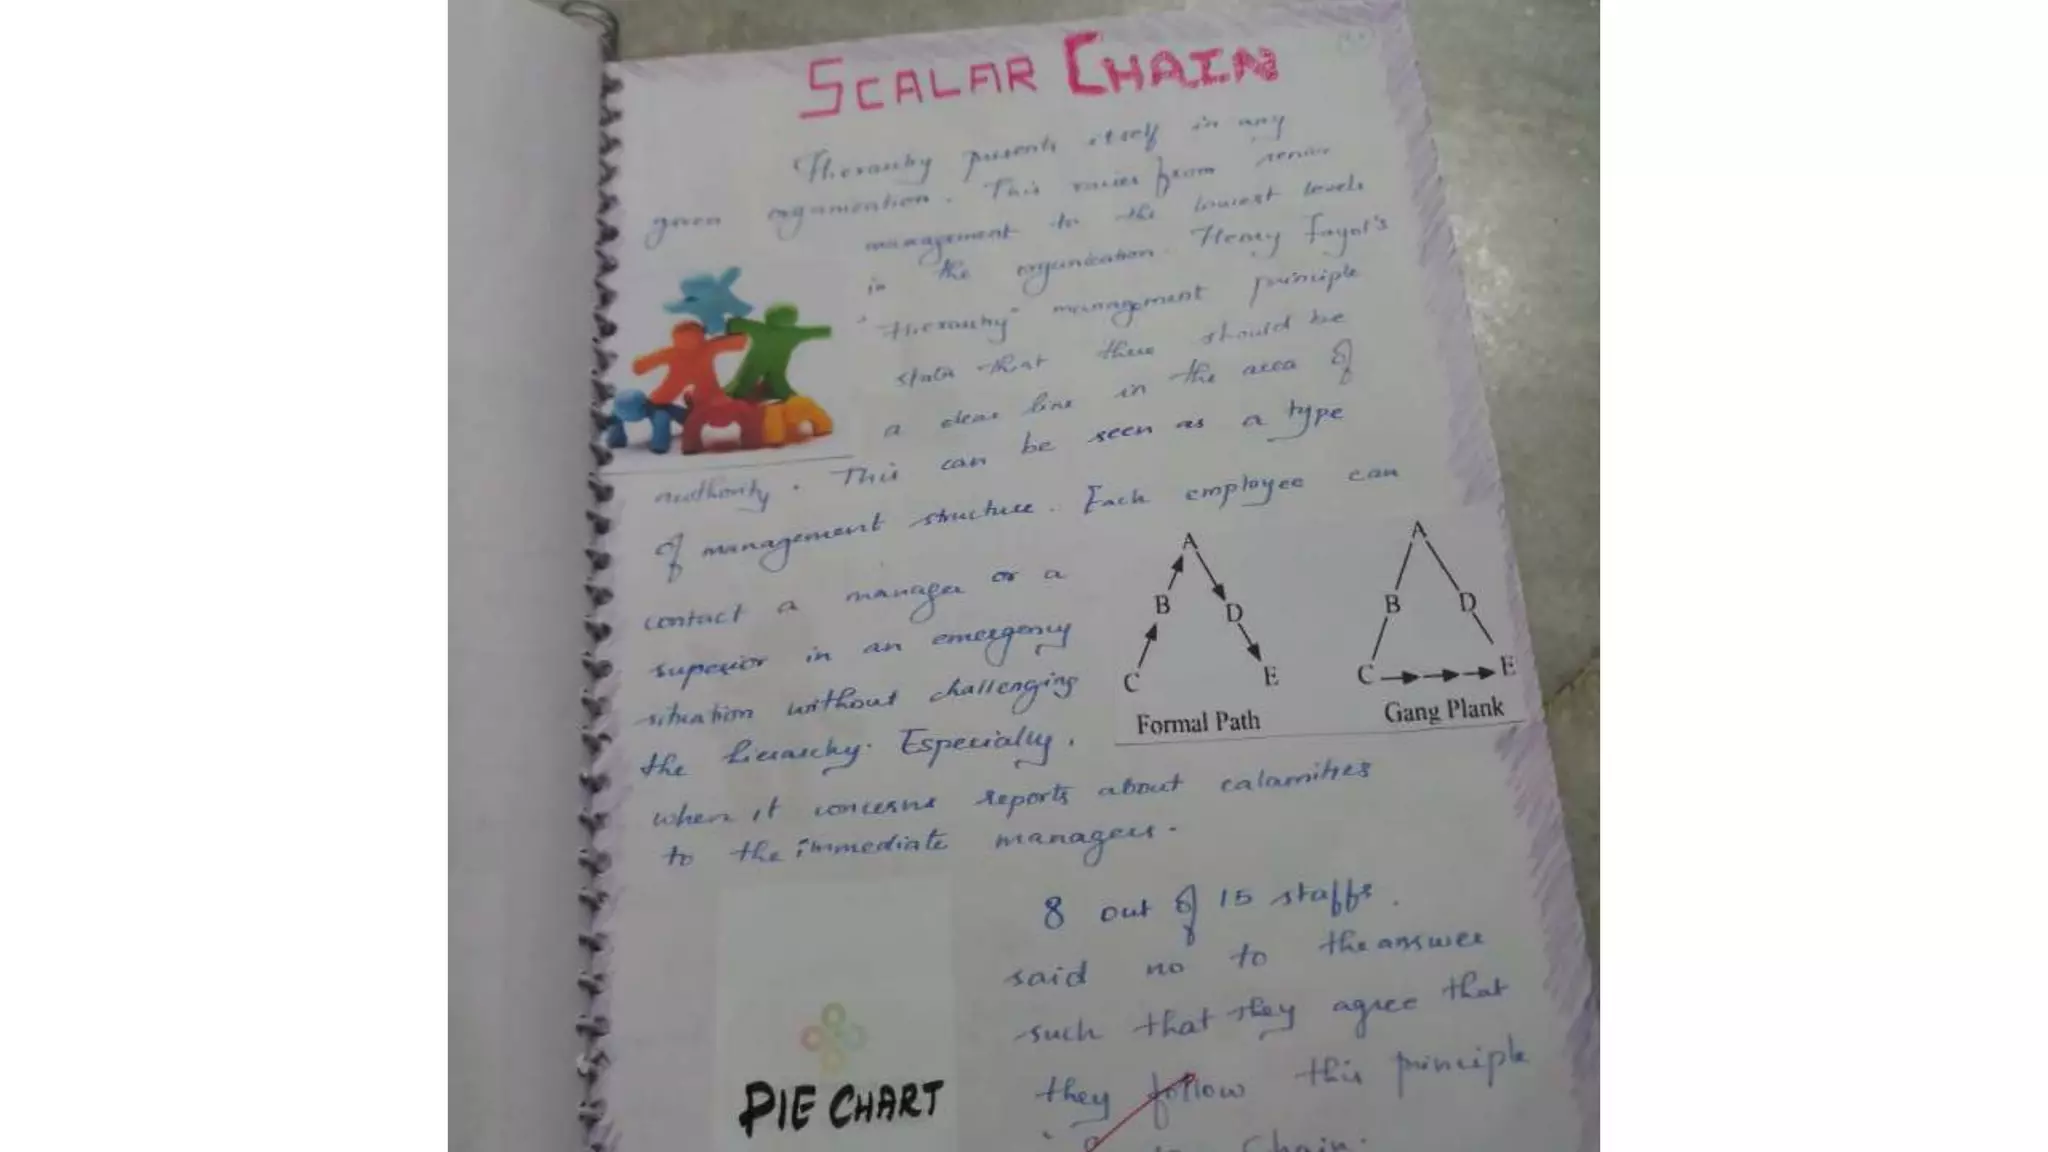 SCALAR CHAIN
Hierarchy presents itself in any
given organization. This varies from senior
management to the lowest levels
in the organization. Henry Fayol's
"Hierarchy" management principle
states that there should be
a clear line in the area of
authority. This can be seen as a type
of management structure. Each employee can
contact a manager or a
superior in an emergency
situation without challenging
the hierarchy. Especially,
when it concerns reports about calamities
to the immediate managers.
A
B
D
C
E
Formal Path
A
B
D
C
E
Gang Plank
8 out of 15 staffs
said no to the answer
such that they agree that
they follow this principle
chain.
PIE CHART